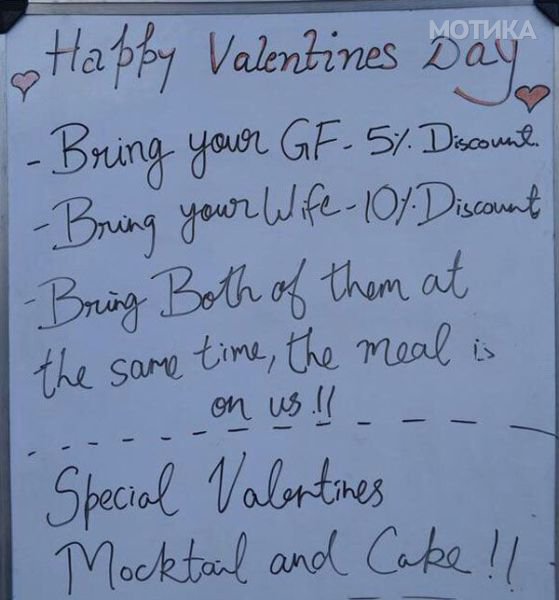 МОТИКА
Happy Valentines Day
- Bring your GF - 5% Discount.
- Bring your Wife - 10% Discount
- Bring Both of them at
the same time, the meal is
on us!!
Special Valentines
Mocktail and Cake!!